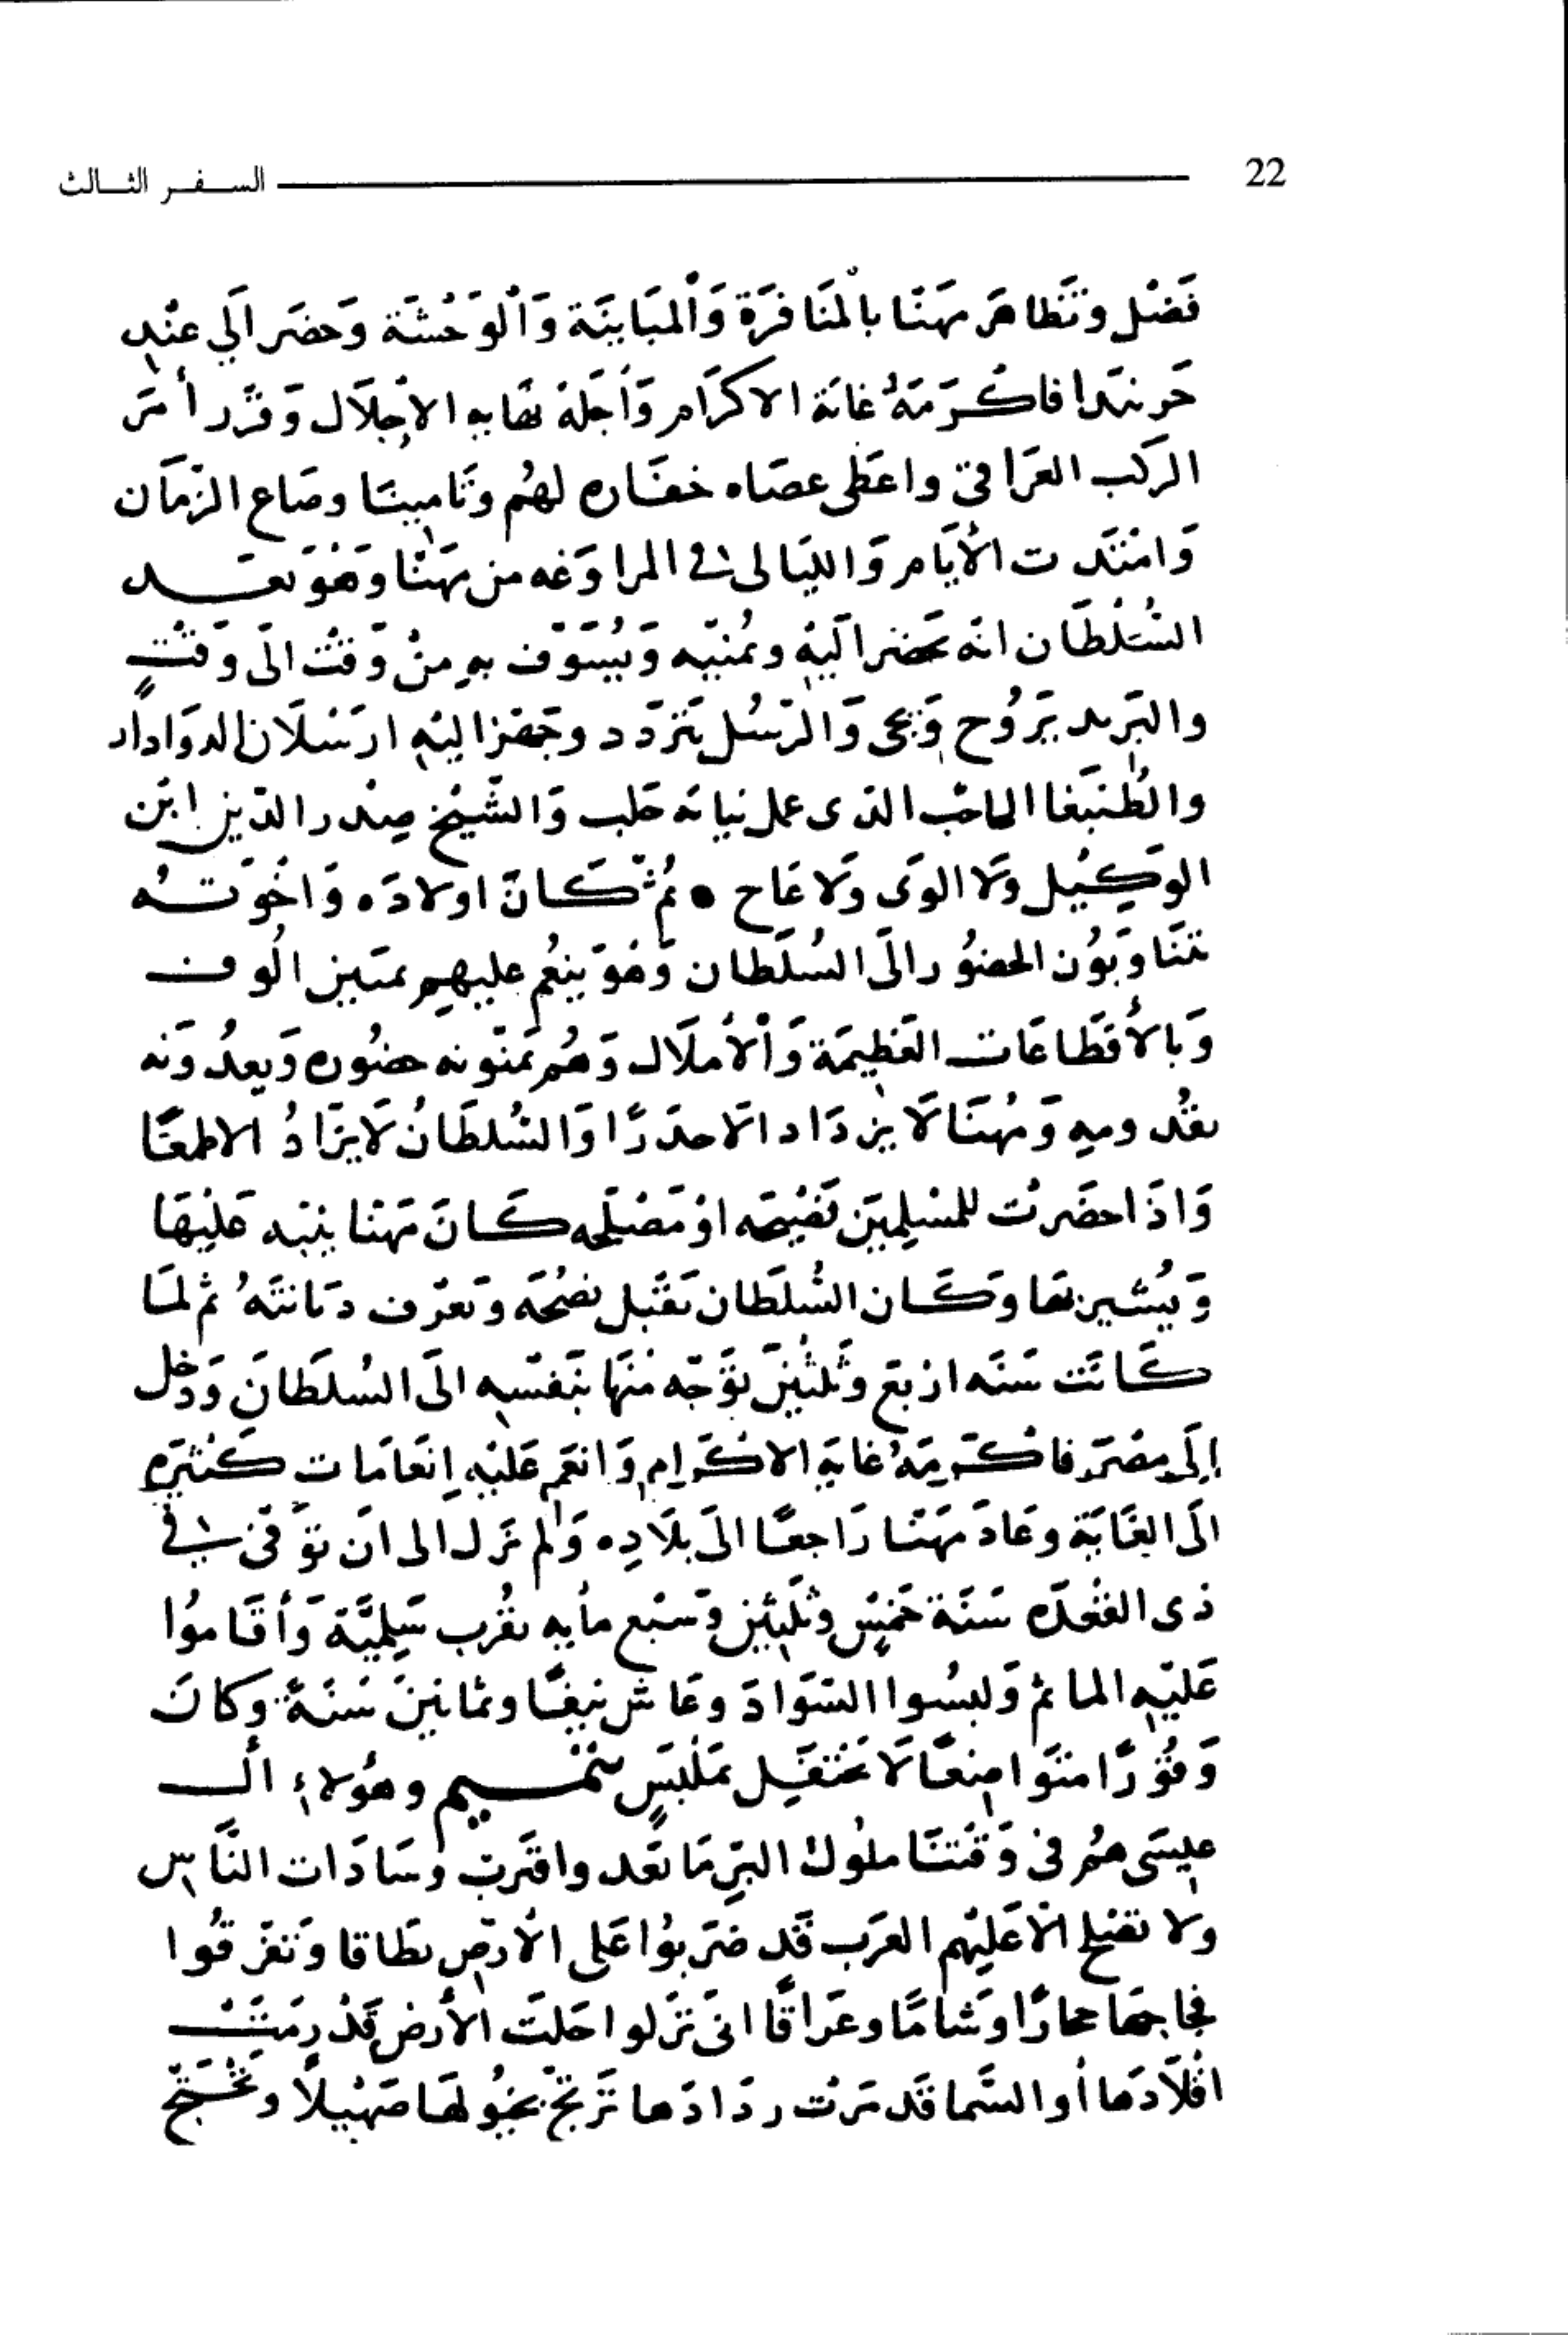 22 السفر الثالث
فَضْل وتَظاهَر مهَنّا بالمنَافرَة وَالمبَاينَة وَالْوَحْشَة وَحضَر الَي عنْدِ
خَربندَا فاكْرَمَهُ غايَة الاكرَام وَأجَلهُ نهَايه الاِجْلَال وَقرَّر أمرَ
الركب العرَاقي واعَطى عصَاه خفَاره لهُم وتَامِينا وضاع الزمَان
وَامْتَدت الأيَام وَالليَالى في المراوَغه من مهَنّا وَهُو يعَد
السُّلْطَان انه يَحضر اليْهِ ويُمنيّه وَيُسَوّف بهِ مِنْ وَقتْ الىَ وَقتٍ
والبَريد يَرُوح وَيجى وَالرسُل تَتردّد وجَهّز اليْهِ ارسْلَان الدوَادار
والطُنبَغا الحاجْب الذى عمل نيابَه حَلب وَالشّيْخ صدْر الدّين ابْن
الوَكِيْل وَلَا الوَى وَلا عَاج • ثمُّ كَانَ اولادَه وَاخْوَتُه
يتنَاوَبوُن الحضوُر الَى السُلطان وَهُوَ ينعُم عليهِم بمئين الُوف
وَبالأقطَاعَات العَظِيمَة وَالأملَاك وَهُم يمَنّونه حضُوره وَيعِدُونَه
بقُدومِهِ وَمُهنّا لَا يزدَاد الَا حذَرًا وَالسُلطَانُ لَا يزَادُ الا طمعًا
وَاذَا حضَرتْ للمسْلِمِيَن نصَيْحَه اوْ مَصْلَحه كَانَ مهنَا ينبّه عَليْهَا
وَيُشير بها وَكَان السُلطَان يَقْبَل نصُحَه وَيَعرّف دَيانتَهُ ثم لمّا
كَانَت سَنَه اربَع وَثَلثيْنَ توَجّه مُهنّا بنَفسِه الَى السُلطَانَ وَدخل
اِلَى مِصْرَ فاكْرَمَهُ غايَه الاكْرَام وَانعَم عَليْه اِنعَامَات كَثيْرَه
الَى الغَايَة وعَادَ مهَنّا رَاجعًا الىَ بلَادِه وَلم يَزل الى ان توَفى في
ذى القْعدَه سَنَة خمَسْ وثلَثيْن وَسَبْع مأيه بقُرب سَلِميَّة وَأقَاموُا
عَليْهِ الماثم وَلبسُوا السّوَادَ وعَاش نيفًا وثمانينَ سَنَةً وَكانَ
وَقوُرًا متَوَاضِعًا لَا يَحْتَفِل بمَلْبَسٍ وهؤلاءِ ال
عِيسَى هُم في وَقتنَا ملُوك البرِ مَا بَعد واقْتَربَ وسَادَات النَّاس
ولا تصْلح الّا عَليْهم العَرب قَد ضَربوُا عَلى الأرض نطَاقا وَتَفرقُوا
فجاجهَا حجازًا وَشامًا وعَراقًا انىَ نزَلوا حَلتَ الأرض قَدْ رمَتْ
افْلَاذَهَا أو السَّما قَد رَذَاذَها تَرتجّ بخيُولهَا صَهْيلًا